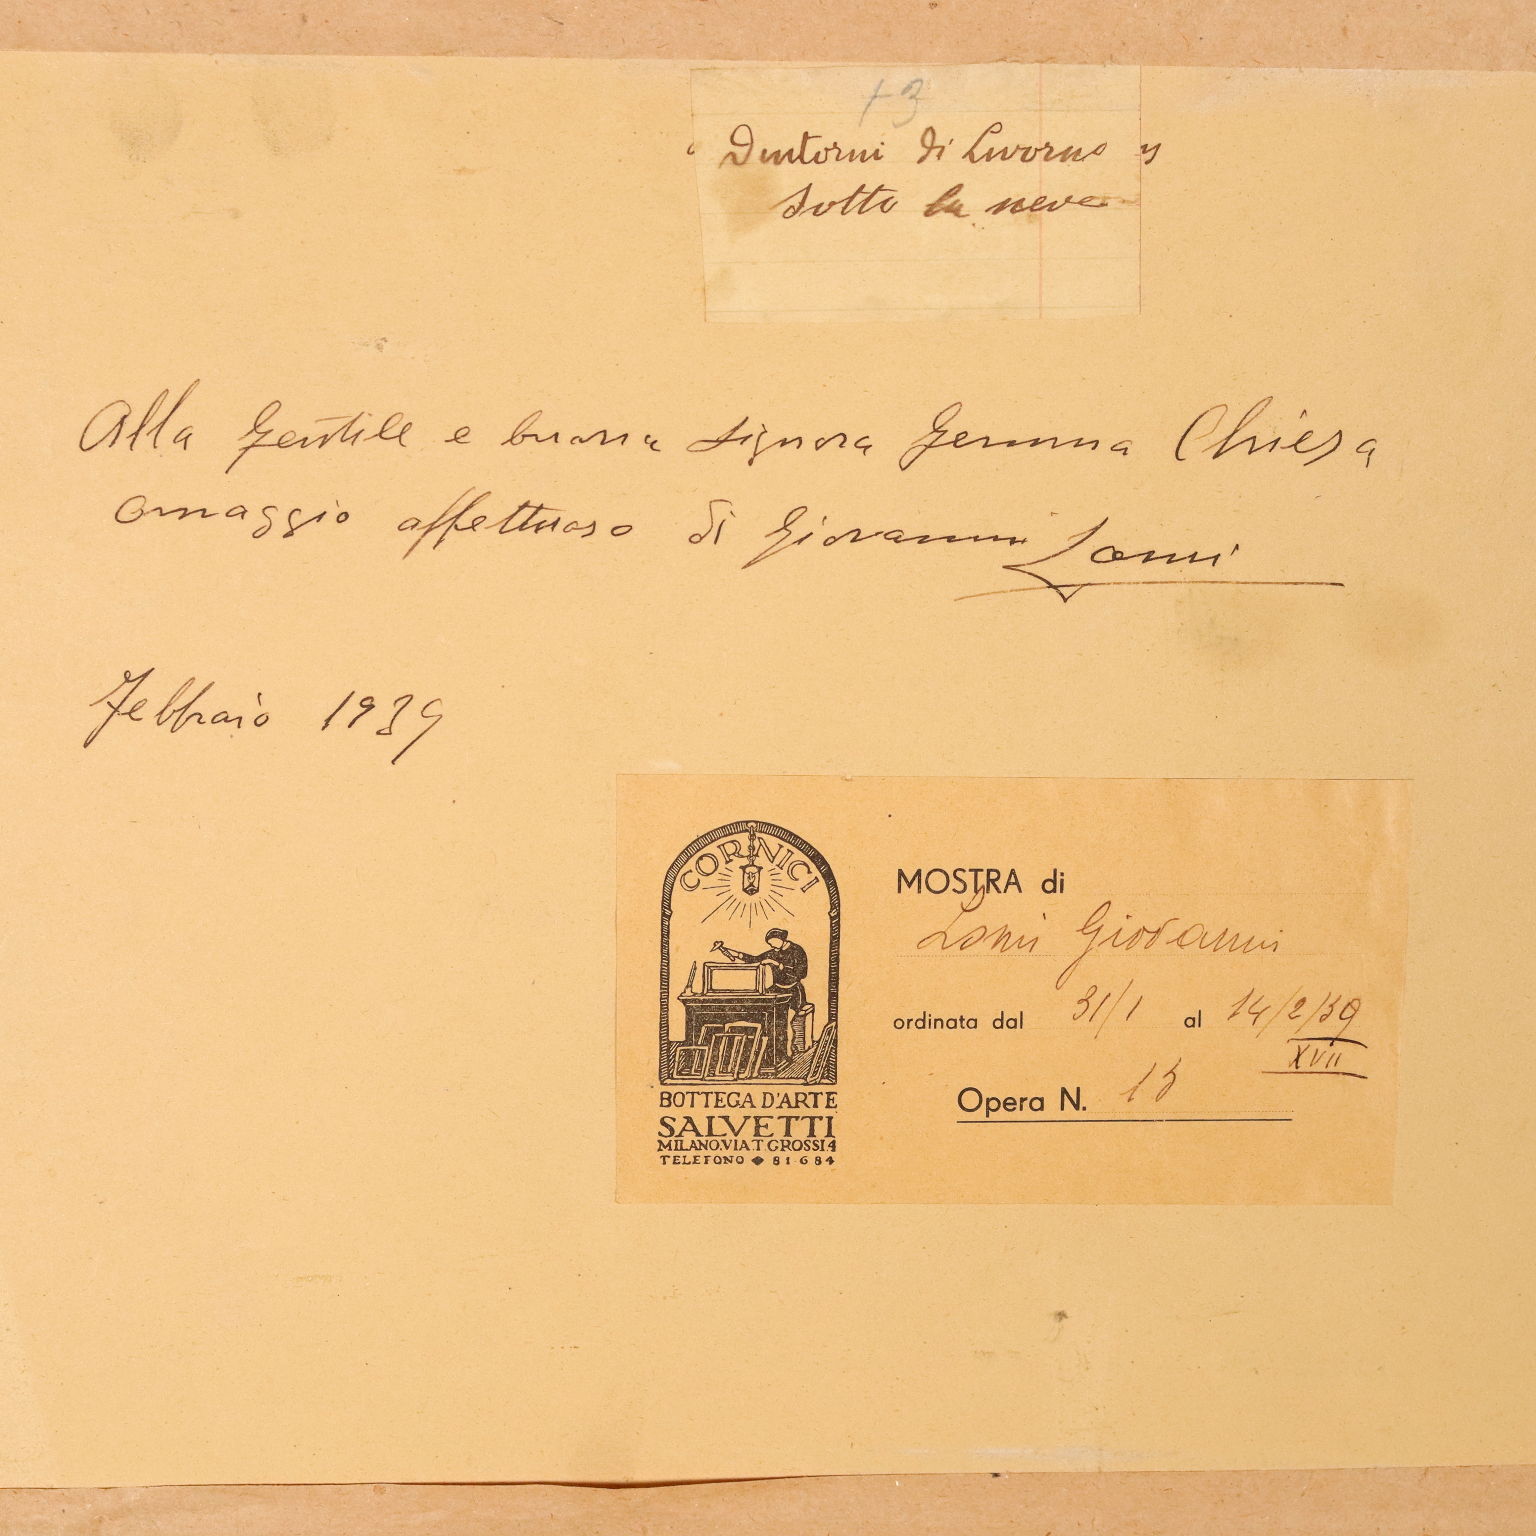 13
" Dintorni di Livorno "
Sotto la neve
Alla gentile e buona signora Gemma Chiesa
omaggio affettuoso di Giovanni Lomi
Febbraio 1939
CORNICI
BOTTEGA D'ARTE
SALVETTI
MILANO.VIA.T.GROSSI.4
TELEFONO ◆ 81-684
MOSTRA di
Lomi Giovanni
ordinata dal 31/1 al 14/2/39
XVII
Opera N. 13